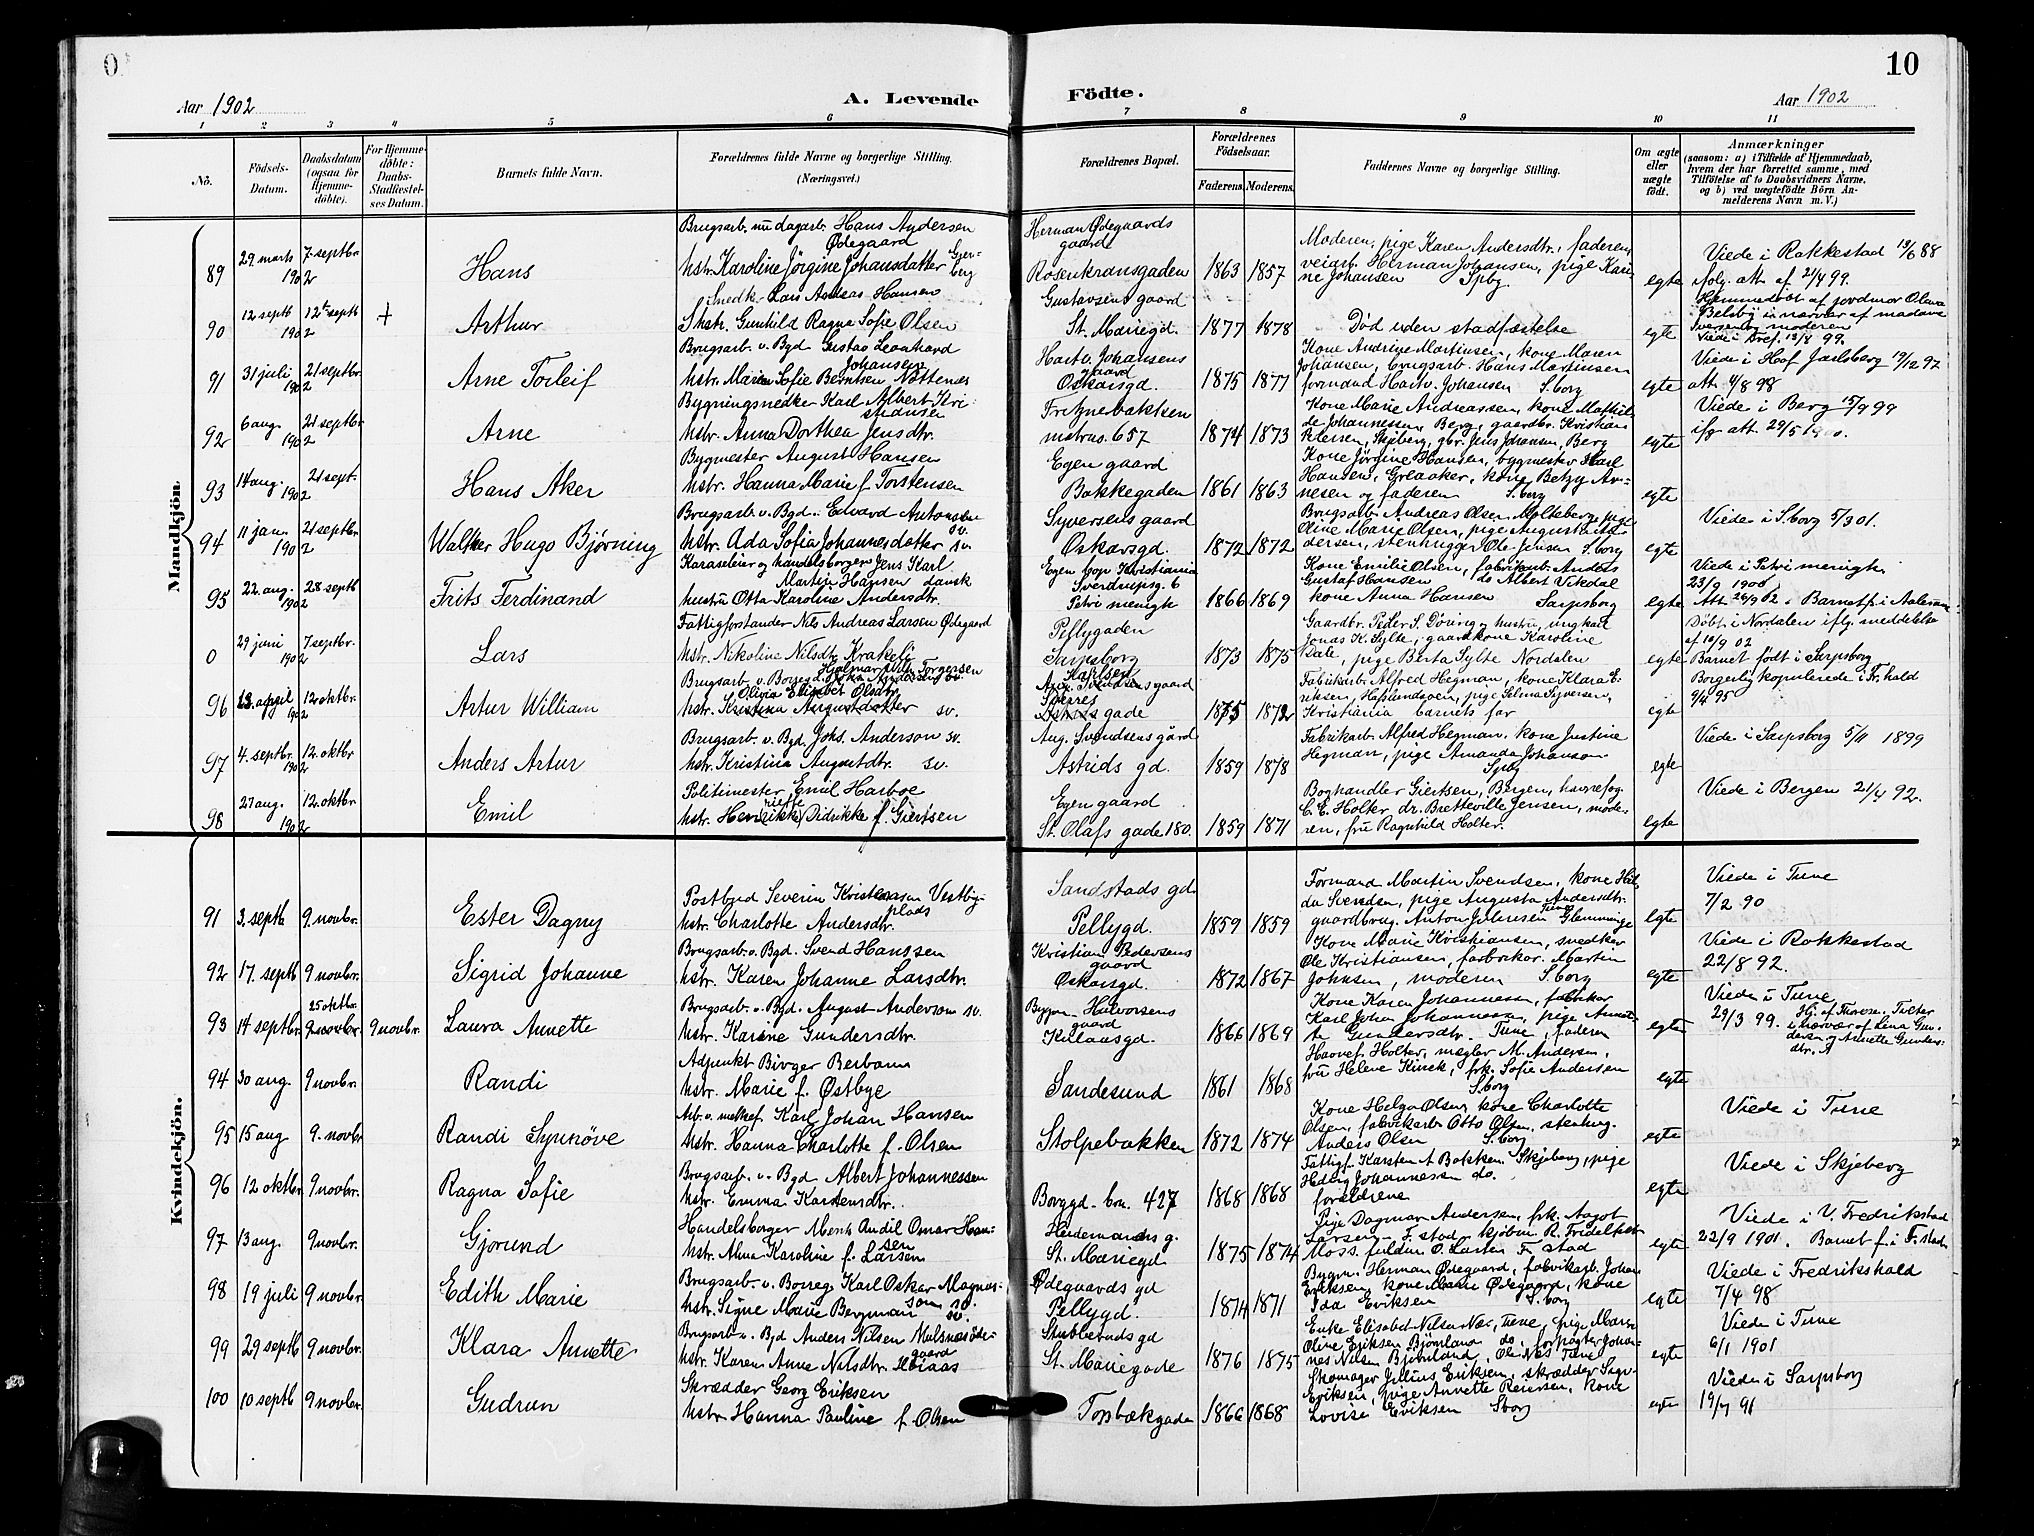 10
Aar 1902
A. Levende Födte.
Aar 1902
1 2 3 4 5 6 7 8 9 10 11
No.
Födsels-Datum.
Daabsdatum (ogsaa for Hjemme-döbte).
For Hjemme-döbte: Daabs-Stadfæstel-ses Datum.
Barnets fulde Navn.
Forældrenes fulde Navne og borgerlige Stilling.
(Næringsvei.)
Forældrenes Bopæl.
Forældrenes Födselsaar.
Faderens. Moderens.
Faddernes Navne og borgerlige Stilling.
Om ægte eller uægte födt.
Anmærkninger
(saasom: a) i Tilfælde af Hjemmedaab,
hvem der har forrettet samme, med
Tilföielse af to Daabsvidners Navne,
og b) ved uægtefödte Börn An-
melderens Navn m. V.)
Mandkjön.
89 29 marts 1902 7 septbr. Hans
Brugsarb. nu dagarb. Hans Andersen Ødegaard
hstr. Karoline Jörgine Johansdatter
Herman Ødegaards gaard
Rosenkransgaden 1863 1857
Moderen, pige Karen Andersdtr., faderen,
veiarb. Herman Johansen, pige Kari-
ne Johansen Spbg. egte
Viede i Rakkestad 13/6 88
ifølg. att. af 21/4 99.
90 12 septb 1902 12te septb + Arthur
Snedk. Lars Andreas Hansen
hstr. Gunhild Ragna Sofie Olsen
Gustavsens gaard
St. Mariegd. 1877 1878
Død uden stadfæstelse egte
Hjemmedøbt af jordmor Olava
moderen
91 31 juli 1902 21 septbr. Arne Torleif
Brugsarb. v. Bgd Gustav Leonhard Johansen
hstr. Maren Sofie Berntsen Nøttenes
Hartv. Johansens gaard
Oskarsgd. 1875 1877
Kone Andrine Martinsen, kone Maren
Johansen, brugsarb. Hans Martinsen
formand Hartv. Johansen S.borg egte
Viede i Hof Jarlsberg 19/12 97
att. 4/8 98
92 6 aug. 1902 21 septbr Arne
Bygningsnedker Karl Albert Kri-
stiansen
hstr. Anna Dorthea Jensdtr.
Fritznebakken
matrno. 657 1874 1873
Kone Marie Andreassen, kone Mathil-
de Johannesen, Berg, gaardbr. Kristian
Skjeberg, gbr. Jens Johansen, Berg egte
Viede i Berg 15/9 99
ifg. att. 29/5 1900.
93 14 aug. 1902 21 sept. Hans Aker
Bygmester August Hansen
hstr. Hanna Marie f. Torstensen
Egen gaard
Bakkegaden 1861 1863
Kone Jørgine Hansen, bygmester Karl
Hansen, Greaaker, kone Betzy Ar-
nesen og faderen S.borg egte
94 11 jan. 1902 21 septbr Walther Hugo Bjørning
Brugsarb. v. Bgd. Edvard Antonsen sv.
hstr. Ada Sofia Johannesdatter sv.
Syversens gaard
Oskarsgd. 1872 1872
Brugsarb. Andreas Olsen Molteberg, pige
Oline Marie Olsen, pige Augusta An-
dersen, stenhugger Ole Jensen S.borg egte
Viede i S.borg 5/3 01.
95 22 aug. 1902 28 septb Frits Ferdinand
Karaseleier og handelsborger Jens Karl
Martin Hansen dansk
hustru Otta Karoline Andersdtr.
Egen bop Kristiania
Sverdrupsg. 6
Petri menigh 1866 1869
Kone Emilie Olsen, fabrikarb. Anders
Gustaf Hansen do Albert Vikdal
kone Anna Hansen Sarpsborg egte
Viede i Petri menigh.
23/9 1900
Att. 26/9 02. Barnet f. i Aalesund
0 29 juni 1902 7 septbr. Lars
Fattigforstander Nils Andreas Larsen Ødegaard
hstr. Nikoline Nilsdtr. Krakeli
Pellygaden
Sarpsborg 1873 1875
Gaardbr. Peder S. Døving og hustru, ungkarl
Jonas K. Sylte, gaardkone Karoline
Dale, pige Berta Sylte Nordalen egte
Døbt i Nordalen iflg. meddelelse
af 10/9 02
Barnet født i Sarpsborg
96 april 1902 12 oktbr. Artur William
Brugsarb. v. Borregd. Hjalmar Wilh. Torgersen
Olivia Elisabet Olsdtr
hstr. Kristina Augustdatter sv.
Karlsen
Aug. Svendsens gaard
gade 1875 1872
Fabrikarb. Alfred Hegman, kone Klara E-
riksen, Hafslundsøen, pige Selma Syversen,
Kristiania barnets far egte
Borgerlig kopulerede i Fr.hald
9/4 95
97 4. septbr. 1902 12 oktbr Anders Artur
Brugsarb. v. Bgd. Johs. Anderson sv.
hstr. Kristina Augustdtr. sv.
Aug. Svendsens gård
Astrids gd. 1859 1878
Fabrikarb. Alfred Hegman, kone Justine
Hegman, pige Amanda Johanson
Spbg egte
Viede i Sarpsborg 5/11 1899
98 27 aug. 1902 12. oktbr. Emil
Politimester Emil Harboe
hstr. Henriette (Henrikke) Didrikke f. Giertsen
Egen gaard
St. Olafs gade 180. 1859 1871
Boghandler Giertsen, Bergen, havnefog.
C. E. Holter, dr. Bretteville Jensen, mode-
ren, fru Ragnhild Holter. egte
Viede i Bergen 21/4 92.
Kvindekjön.
91 3. septb 9. novbr. Ester Dagny
Postbud Severin Kristensen Vestby-
plads
hstr. Charlotte Andersdtr.
Sandstads gd.
Pellygd. 1859 1859
Formand Martin Svendsen, kone Hil-
da Svendsen, pige Augusta Andersdtr. Tune
gaardbrug. Anton Julensen Glemminge egte
Viede i Tune
7/2 90
92 17. septb 9 novbr. Sigrid Johanne
Brugsarb. v. Bgd. Svend Hanssen
hstr. Karen Johanne Larsdtr.
Kristian Pedersens gaard
Oskarsgd. 1872 1867
Kone Marie Kristiansen, snedker
Ole Kristiansen, fabrikar. Martin
Johnsen, moderen S.borg egte
Viede i Rakkestad
22/8 92.
93 14 septbr. 25 oktbr. 9 novbr. 9 novbr. Laura Annette
Brugsarb. v. Bgd. August Anderson sv.
hstr. Karine Gundersdtr.
Bygm. Halvorsens gaard
Kulaasgd. 1866 1869
Kone Karen Johannessen, fabrikar
Karl Johan Johannessen, pige Annet-
te Gundersdtr. Tune, faderen egte
Viede i Tune
29/3 99.
Hj. af Therese Tveter
i nærvær af Lina Gun-
dersen og Annette Gunders-
dtr.
94 30 aug. 9 novbr. Randi
Adjunkt Birger Berbom
hstr. Marie f. Østbye
Sandesund 1861 1868
Havnef. Holter, mægler M. Andersen,
fru Helene Kinck, frk. Sofie Andersen
S.borg egte
95 15 aug 9. novbr Randi Synnøve
Arb. v. melkef. Karl Johan Hansen
hstr. Hanna Charlotte f. Olsen
Stolpebakken 1872 1874
Kone Helga Olsen, kone Charlotte
Olsen, fabrikarb Otto Olsen, stenhug.
Anders Olsen S.borg egte
Viede i Tune
96 12 oktbr. 9 novbr. Ragna Sofie
Brugsarb. v. Bgd Albert Johannessen
hstr. Emma Karstensdtr.
Borggd. bn. 427 1868 1868
Fattigf. Karsten A Bakken, Skjeberg, pige
Hedvig Johannesen do.
forældrene egte
Viede i Skjeberg
97 13 aug. 9 novbr. Gjorund
Handelsborger Ment Andil Omar Han-
sen
hstr. Alma Karoline f. Larsen
Heidemarks g.
St. Mariegd 1875 1874
Pige Dagmar Andersen, frk. Aagot
Larsen F. stad, kjøbm. R. Fridelhof
Moss, fuldm. O. Larsen Fr. stad egte
Viede i V. Fredrikstad
22/9 1901. Barnet f. i F. stad
98 19 juli 9 novbr. Edith Marie
Brugsarb. v. Borreg. Karl Oskar Magnus-
son sv.
hstr. Signe Marie Bergman sv.
Ødegaards gd
Pellygd. 1874 1871
Bygm. Herman Ødegaard, fabrikarb. Johan
Eriksen, kone Marie Ødegaard, kone
Ida Eriksen S.borg egte
Viede i Fredrikshald
7/4 98
99 29 septb 9 novbr. Klara Annette
Brugsarb. v. Bgd Anders Nilsen Mulsnesöde-
gaard
hstr. Karen Anne Nilsdtr.
Stubberuds gd
St. Mariegade 1876 1875
Enke Elisabet Nilsen Nes, Tune, pige Maren
Oline Eriksen Bjørnland do, forpagter Johan-
nes Nilsen Bjørnland, Ole Nes Tune egte
Viede i Tune
6/1 1901
100 10 septb 9 novbr. Gudrun
Skrædder Georg Eriksen
hstr. Hanna Pauline f. Olsen
Torsbækgade 1866 1868
Skomager Julius Eriksen, skrædder Sigv.
Eriksen, pige Annette Reiersen, kone
Lovise Eriksen Sborg egte
Viede i Sarpsborg
19/7 91